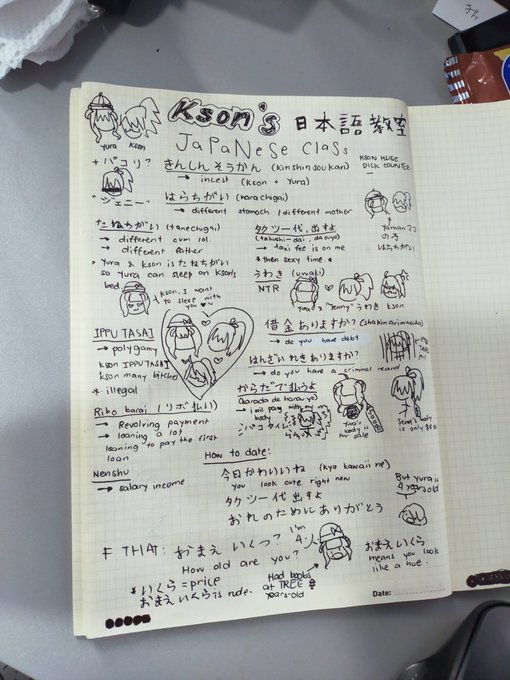 Kson's 日本語教室
Japanese Class
Yura Kson
+パコリ?
"ジェニー"
きんしんそうかん (kinshinsoukan)
→ incest (kson + Yura)
はらちがい (harachigai)
→ different stomach / different mother
たねちがい (tanechigai)
→ different cum lol
→ different father
Yura & kson is たねちがい
so Yura can sleep on kson's
bed.
Kson, I want
to sleep with
you
タクシー代、出すよ
(takushi-dai, dasuyo)
→ taxi fee is on me
* then sexy time. *
の子
はらちがい
うわき (uwaki)
NTR
Yura x "Jenny" うわき kson
IPPUTASAI
→ polygamy
kson IPPUTASAI
kson many bitches
* illegal
借金ありますか? (shakkinarimasuka)
→ do you have debt
はんざいれきありますか?
→ do you have a criminal record
からだで払うよ
(karada de harauyo)
I will pay with my
body
Yura's
body is
for sale
Jenni's body
is only
Ribo barai (リボ払い)
→ Revolving payment
→ loaning a lot
loaning to pay the first
loan
Nenshu
→ salary income
How to date:
今日かわいいね (kyo kawaii ne)
You look cute right now
タクシー代出すよ
おれのためにありがとう
But yura is
4 years old
IF THAT: おまえいくつ?
How old are you?
I'm
4
* いくら = price
おまえいくら is rude.
Had boobs
at TREE
years-old
おまえいくら
means you look
like a hoe.
Date: